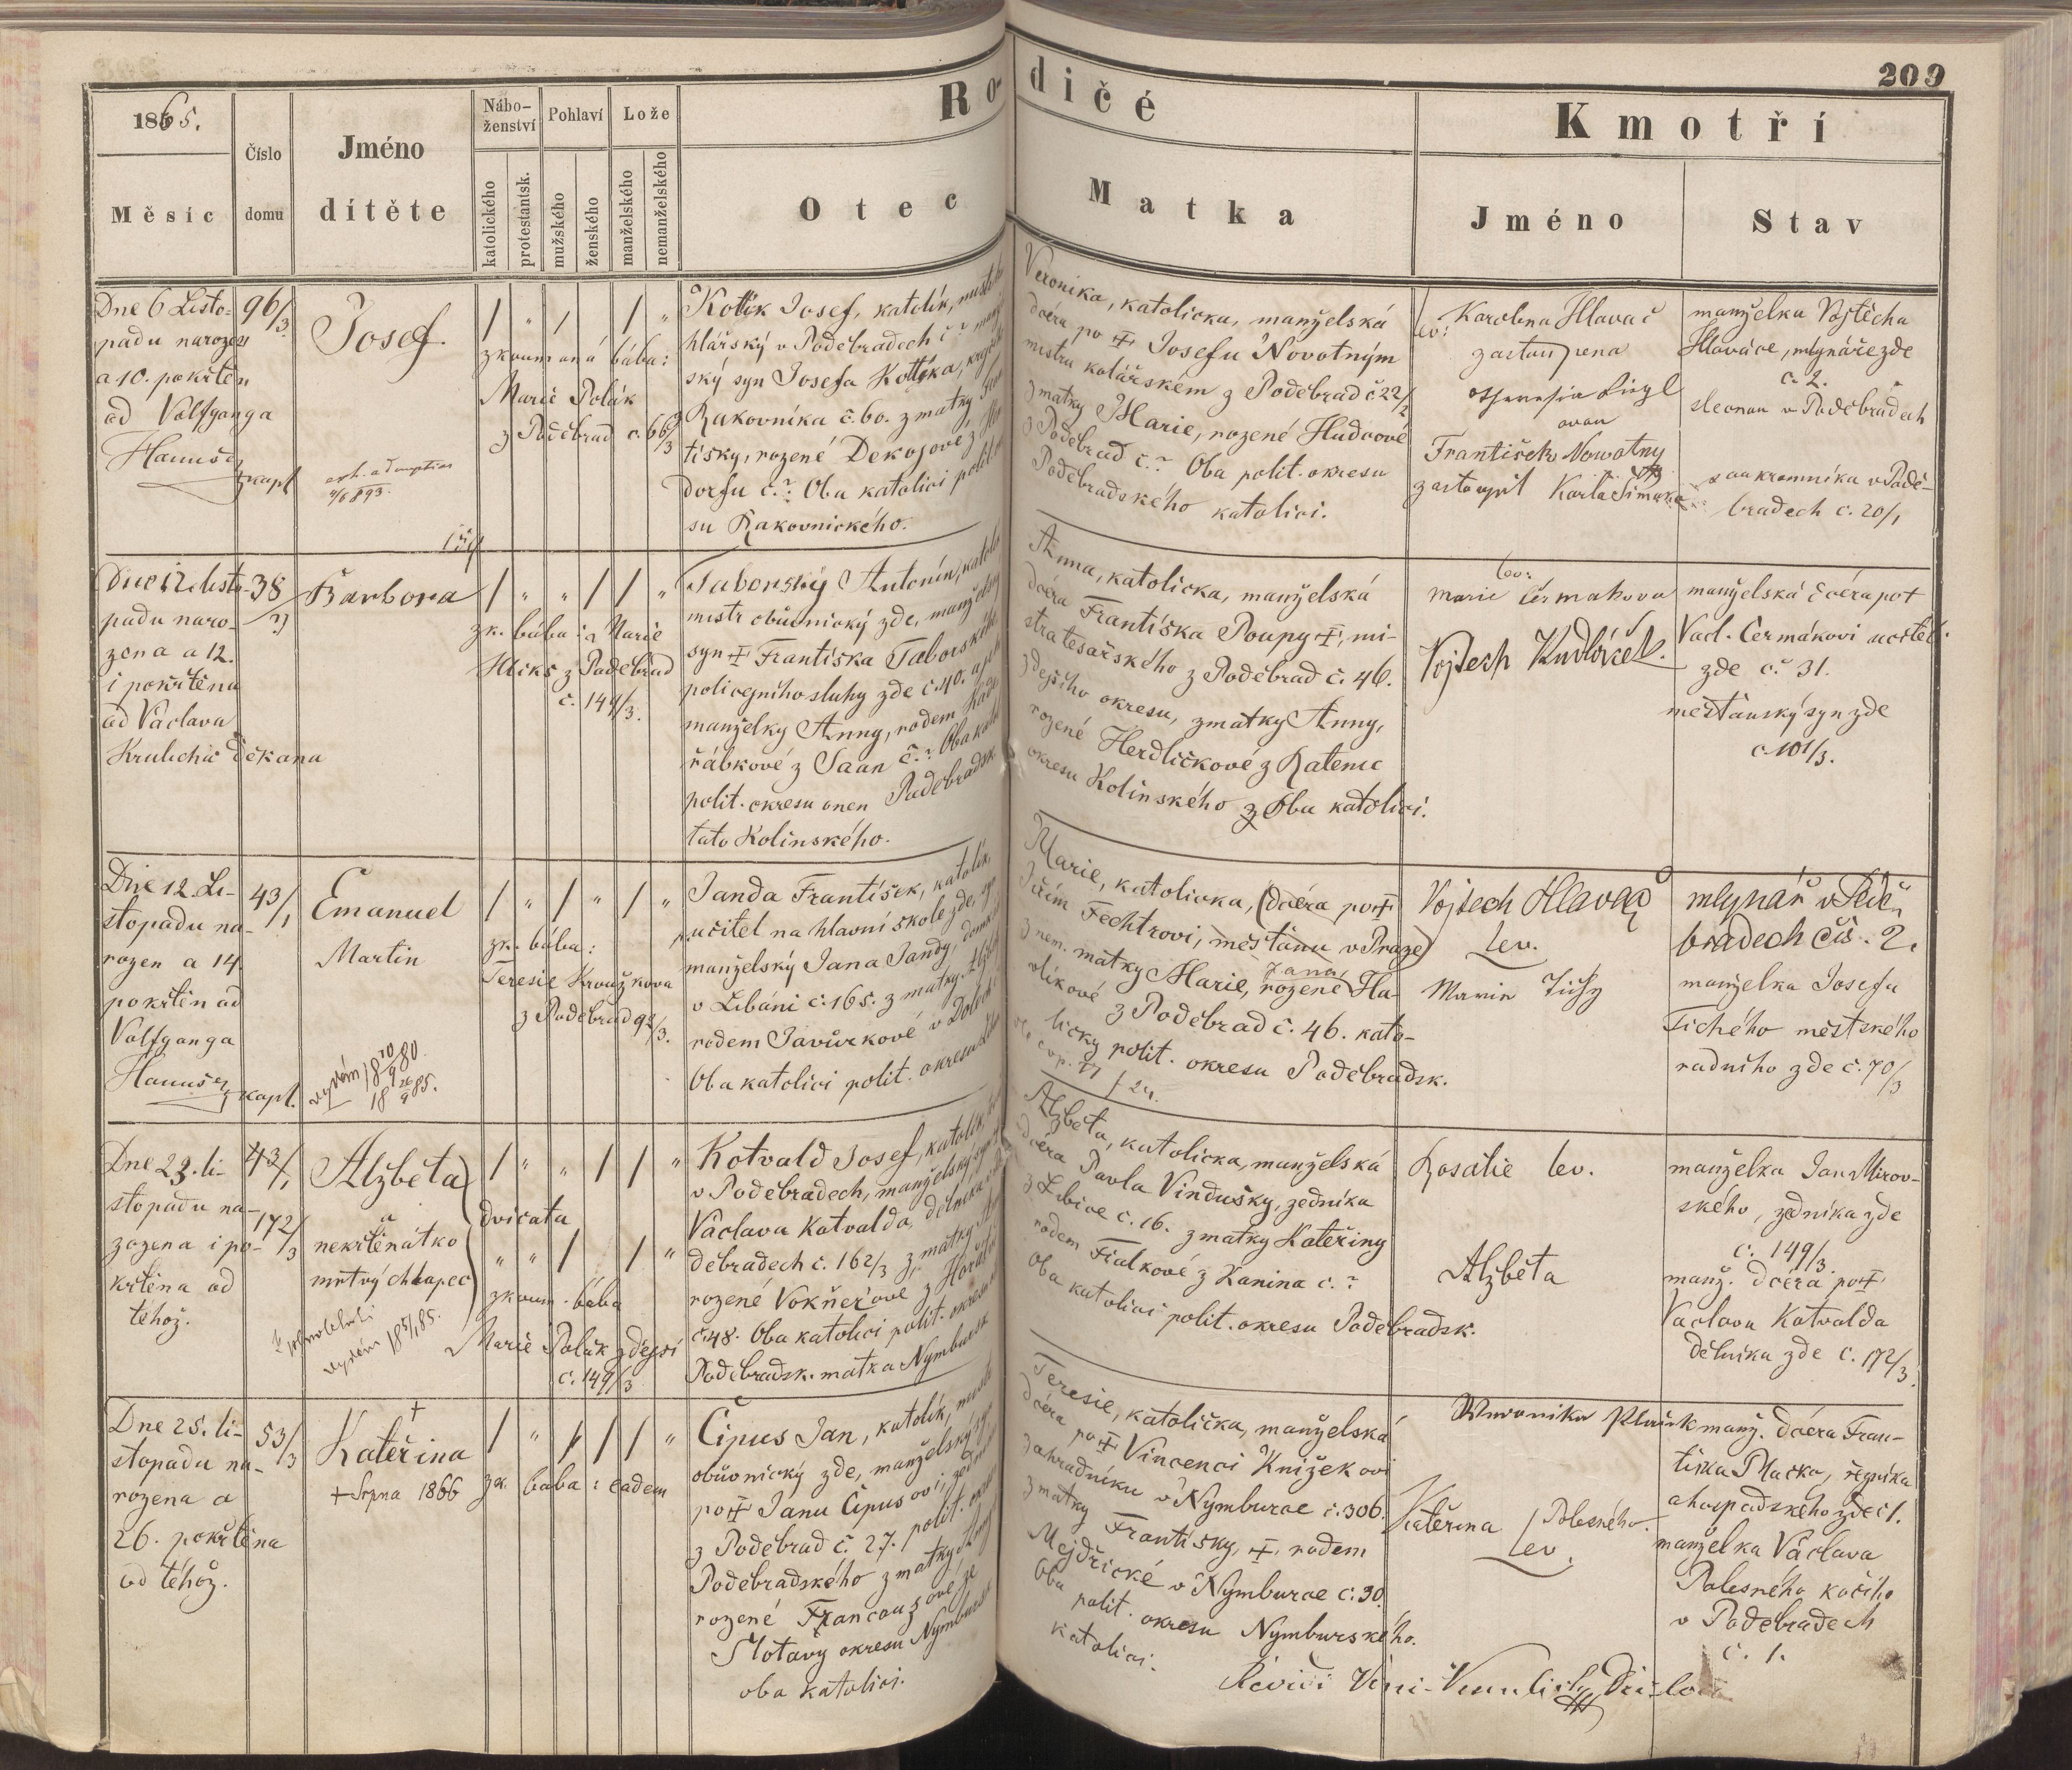 209
1865.
Měsíc
Číslo
domu
Jméno
dítěte
Nábo-
ženství
Pohlaví
Lože
katolického
protestantsk.
mužského
ženského
manželského
nemanželského
Rodičé
Otec
Matka
Kmotří
Jméno
Stav
Dne 6 Listo-
padu narozen
a 10. pokřtěn
od Volfganga
Hanuše
kapl.
96/3
Josef.
/ " / / "
zkoumaná bába:
Marie Polák
z Poděbrad č. 66/3
Kottík Josef, katolík, mistr
hlářský v Poděbradech č ? manžel
ský syn Josefa Kottíka, krejčí
Rakovníka č. 60. z matky Fran
tišky, rozené Dekojové z
dorfu č. ? Oba katolíci polit.
su Rakovnického.
Veronika, katolička, manželská
dcéra po Josefu Novotným
mistru kolářském z Poděbrad č 22/2
z matky Marie, rozené Hudcové
z Poděbrad č. ? Oba polit. okresu
Poděbradského katolíci.
Karolina Hlavač
lev:
zastoupena
František Nowotny
zastoupil Karla Šimáka
manželka Vojtěcha
Hlaváče, mlynáře zde
č. 2.
v Poděbradech
soukromníka v Podě-
bradech č. 20/1
Dne 12 listo-
padu naro-
zena a 12.
i pokřtěna
od Václava
Krulicha děkana
38
Barbora
/ " " / / "
zk. bába: Marie
z Poděbrad
č. 149/3.
Taborský Antonín, katolík
mistr obuvnický zde, manželský
syn Františka Taborského
policejního sluhy zde č. 40. a jeho
manželky Anny, rodem Kade
řábkové z Saan č. ? Oba kato
polit. okresu onen Poděbradsk.
tato Kolinského.
Anna, katolička, manželská
dcéra Františka Poupy, mi-
stra tesařského z Poděbrad č. 46.
zdejšího okresu, z matky Anny,
rozené Herdličkové z Ratenic
okresu Kolinského Oba katolíci.
lev:
Marie Čermakova
Vojtech Kudláček.
manželská dcéra po
Vacl. Čermákovi učitel.
zde č. 31.
měšťanský syn zde
č. 101/3.
Dne 12. Li-
stopadu na-
rozen a 14.
pokřtěn od
Volfganga
Hanuše
kapl.
43/1
Emanuel
Martin
/ " / " / "
zk. bába:
Teresie Kroužkova
z Poděbrad 92/3.
Janda František, katolík,
učitel na hlavní škole zde, syn
manželský Jana Jandy, domkáře
v Libáni č. 165. z matky Alžběty
rodem Javůrkové v
Oba katolíci polit. okresu
Marie, katolička, (dcéra po
Jiřím Fechtrovi, měšťanu v Praze)
z nem. matky Marie, rozené Ha-
líkové z Poděbrad č. 46. kato-
ličky polit. okresu Poděbradsk.
Vojtech Hlavač
Lev.
Marie Tichý
mlynář v Podě-
bradech čís. 2.
manželka Josefa
Tichého městského
radního zde č. 70/3
Dne 23. li-
stopadu na-
rozena i po-
křtěna od
téhož.
43/1
172/3
Alžběta
a
nekřtěňátko
mrtvý chlapec
/ " " / / "
dvojčata
" " / / "
zkoum. bába
Marie Polák zdejší
č. 149/3
Kotvald Josef, katolík,
v Poděbradech, manželský syn
Václava Kotvalda, dělníka v Po
děbradech č. 162/3 z matky
rozené Vokněrové z
č. 48. Oba katolíci polit. okresu
Poděbradsk. matka Nymbursk
Alžběta, katolička, manželská
dcéra Pavla Vindušky, zedníka
z Libice č. 16. z matky Kateřiny
rodem Fialkové z Kanina č. ?
Oba katolíci polit. okresu Poděbradsk.
Rosalie lev.
Alžběta
manželka Jan Mirov-
ského, zedníka zde
č. 149/3
manž. dcéra po
Václavu Kotvalda
dělníka zde č. 172/3.
Dne 25. li-
stopadu na-
rozena a
26. pokřtěna
od téhož.
53/3
Kateřina
+ Srpna 1866
/ " / / "
zk. baba: eadem
Čipus Jan, katolík, mistr
obuvnický zde, manželský syn
po Janu Čipusovi,
z Poděbrad č. 27. polit. okresu
Poděbradského z matky Anny
rozené Francouzové ze
Motavy okresu Nymbursk
oba katolíci.
Teresie, katolička, manželská
dcéra po Vincenci Knižekovi
zahradníku v Nymburce č. 306.
z matky Františky, rodem
Mejdřické v Nymburce č. 30.
Oba polit. okresu Nymburského.
katolíci.
Kateřina Polesného
Lev.
manž. dcéra Fran-
tiška Placka, řezníka
a hospodského zde č 1.
manželka Václava
Polesného kočího
v Poděbradech
č. 1.